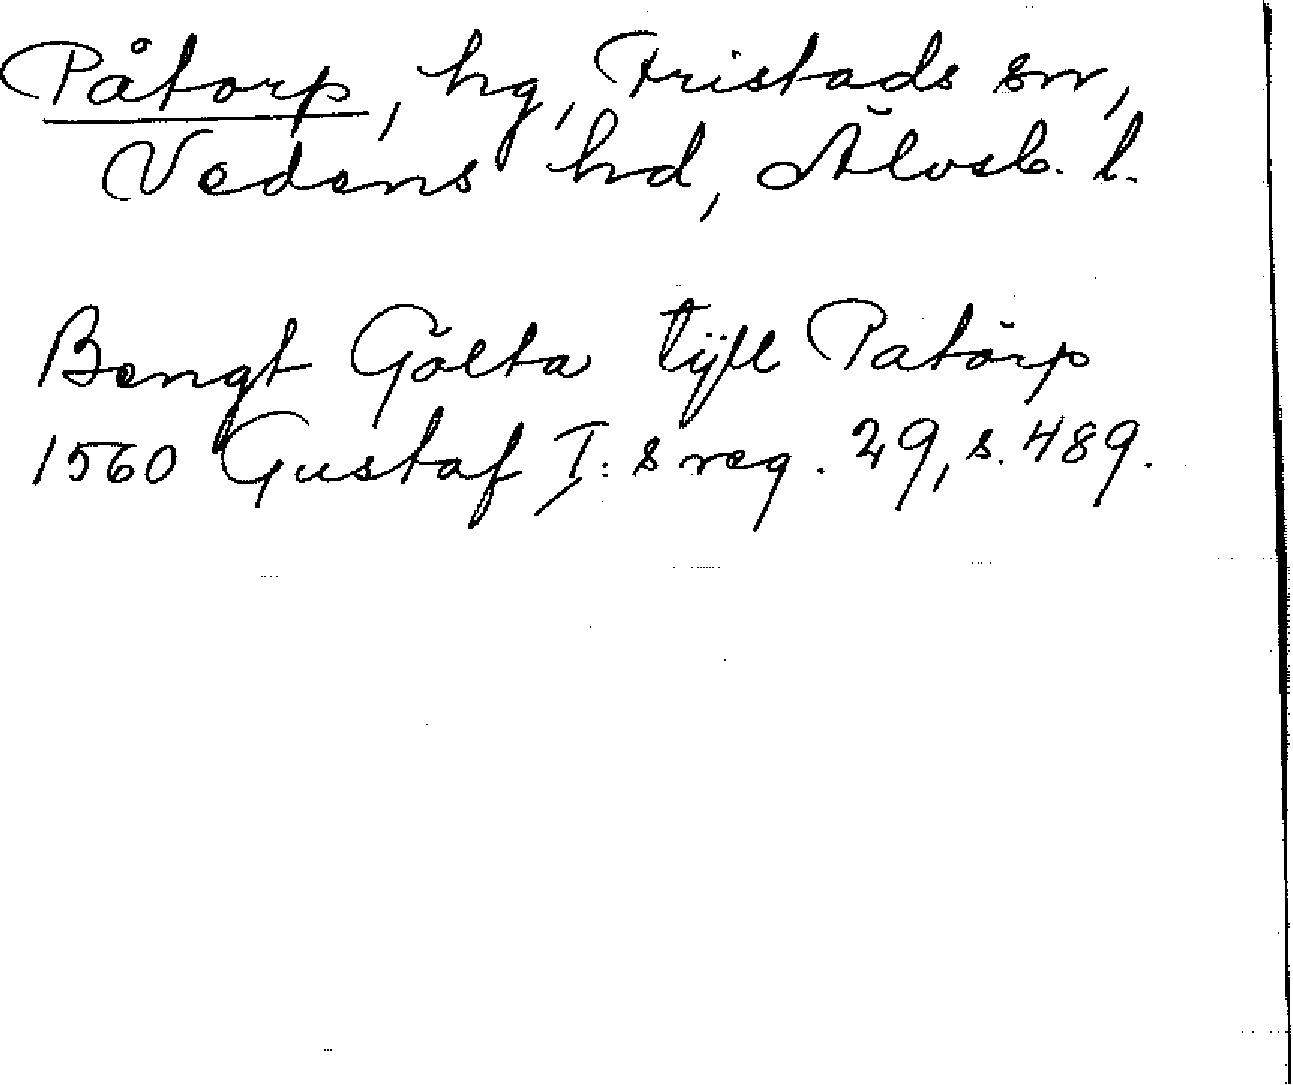 Påtorp, hg, Fristads sn,
Vedens hd, Älvsb. l.
Bengt Gölta tijll Patörp
1560 Gustaf I:s reg. 29, s. 489.